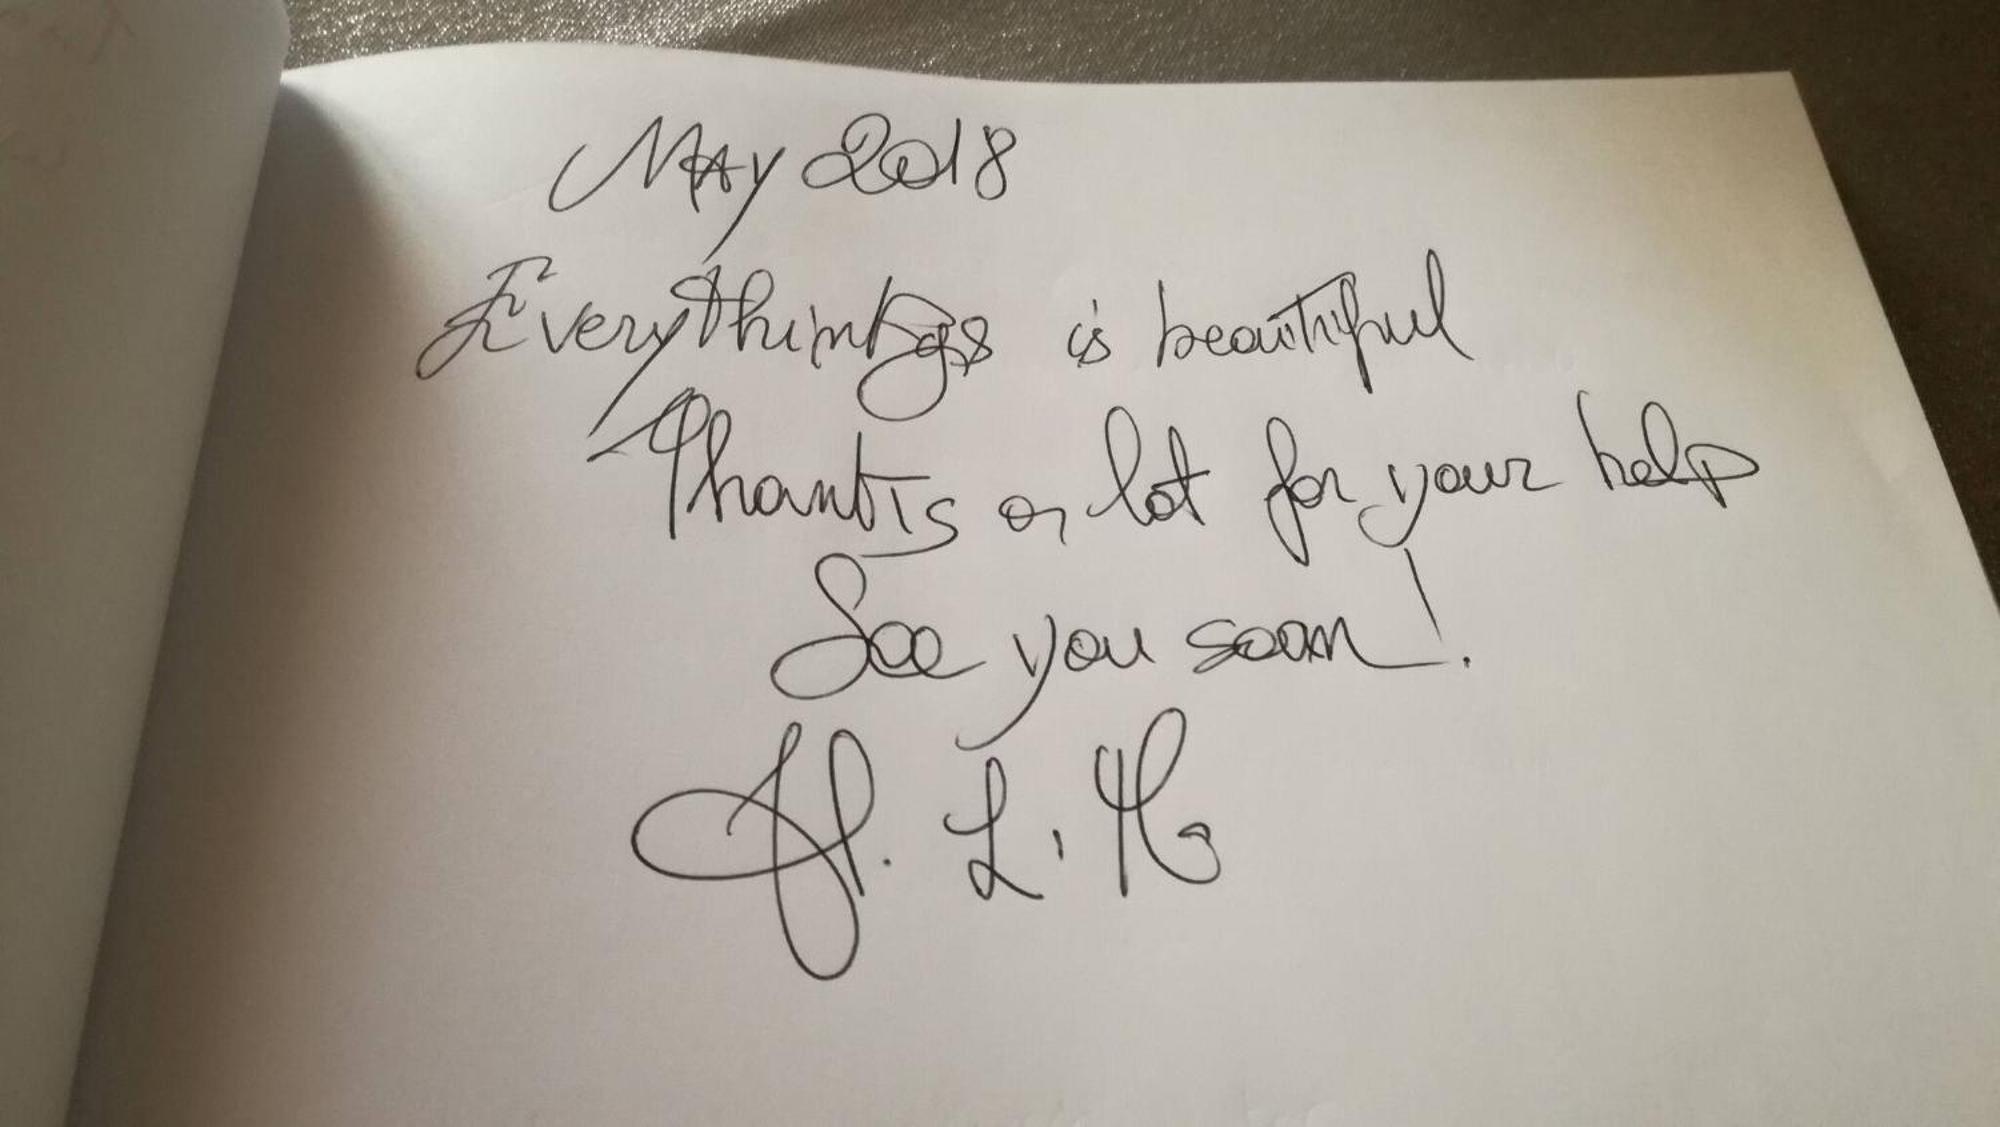 May 2018
Everythings is beautiful
Thanks a lot for your help
See you soon!